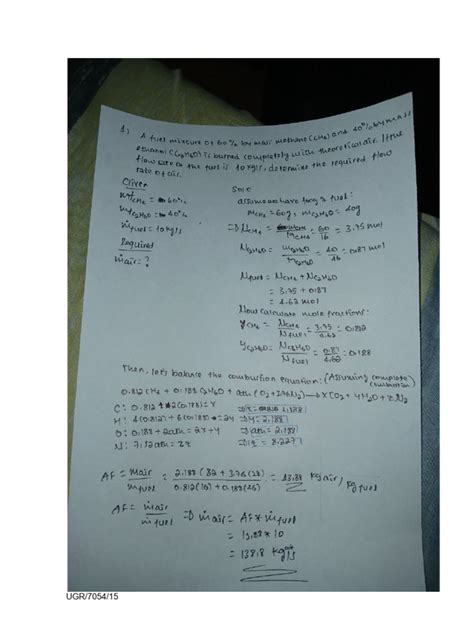 1) A fuel mixture of 60% by mass methane (CH4) and 40% by mass
ethanol (C2H6O) is burned completely with theoretical air. If the
flow rate of the fuel is 10 kg/s, determine the required flow
rate of air.
Given
mfCH4 = 60%
mfC2H6O = 40%
ṁfuel = 10 kg/s
Required
ṁair = ?
Soln
assume we have 100g fuel:
mCH4 = 60g; mC2H6O = 40g
⇒ NCH4 = mCH4/MCH4 = 60/16 = 3.75 mol
NC2H6O = mC2H6O/MC2H6O = 40/46 = 0.87 mol
Nfuel = NCH4 + NC2H6O
= 3.75 + 0.87
= 4.62 mol
Now calculate mole fractions:
yCH4 = NCH4/Nfuel = 3.75/4.62 = 0.812
yC2H6O = NC2H6O/Nfuel = 0.87/4.62 = 0.188
Then, let's balance the combustion equation: (Assuming complete combustion)
0.812 CH4 + 0.188 C2H6O + ath (O2 + 3.76N2) → xCO2 + yH2O + zN2
C: 0.812 + 2(0.188) = x ⇒ x = 1.188
H: 4(0.812) + 6(0.188) = 2y ⇒ y = 2.188
O: 0.188 + 2ath = 2x + y ⇒ ath = 2.188
N: 7.52ath = 2z ⇒ z = 8.227
AF = mair/mfuel = 2.188 (32 + 3.76(28))/0.812(16) + 0.188(46) = 13.88 kg air/kg fuel
AF = ṁair/ṁfuel ⇒ ṁair = AF * ṁfuel
= 13.88 * 10
= 138.8 kg air/s
UGR/7054/15